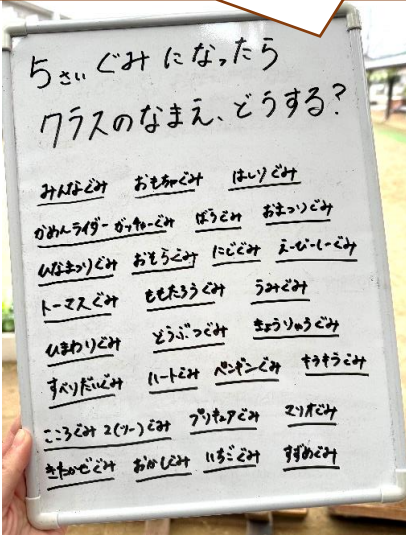 5さい ぐみ になったら
クラスのなまえ、どうする?
みんなぐみ おもちゃぐみ はしりぐみ
かめんライダー ガッチャーぐみ ばらぐみ おまつりぐみ
ひなまつりぐみ おそらぐみ にじぐみ えーびーしーぐみ
トーマスぐみ ももたろうぐみ うみぐみ
ひまわりぐみ どうぶつぐみ きょうりゅうぐみ
すべりだいぐみ ハートぐみ ペンギンぐみ キラキラぐみ
こころぐみ 2(ツー)ぐみ プリキュアぐみ マリオぐみ
きたかぜぐみ おかしぐみ いちごぐみ すずめぐみ